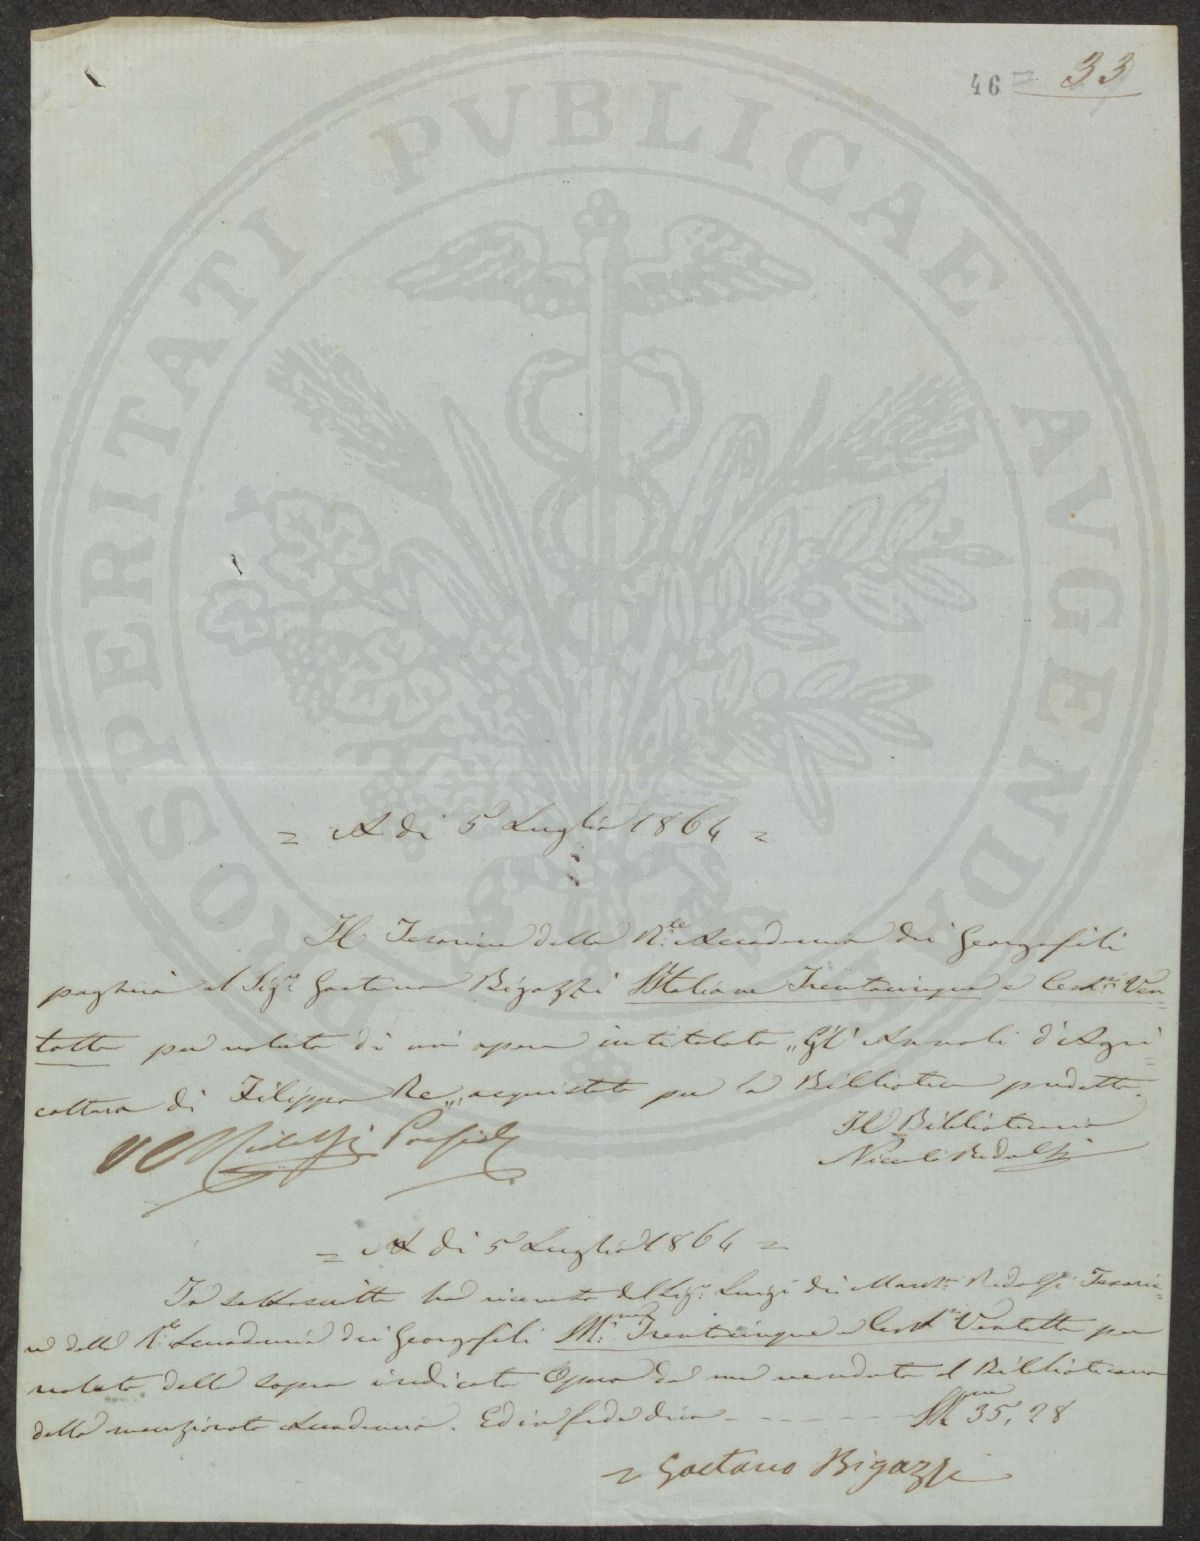 46 = 33
PROSPERITATI PUBLICAE AUGENDAE
= A di 5 Luglio 1864 =
Il Tesoriere della R.le Accademia dei Georgofili
pagherà al Sig.re Gaetano Bigazzi Italiane Trentacinque e Cent.mi Ven=
totto per valuta di un' opera intitolata „Gli Annali d'Agri=
coltura di Filippo Re„ acquistata per la Biblioteca predetta.
Il Bibliotecario
Ridolfi
Niccolò Ridolfi
= A di 5 Luglio 1864 =
Io sottoscritto ho ricevuto dal Sig.re Luigi dei March.si Ridolfi Tesorie=
re della R.le Accademia dei Georgofili Trentacinque e Cent.mi Ventotto per
valuta della sopra indicata Opera da me venduta al Bibliotecario
della menzionata Accademia. Ed in fede dico - - - - - - 35,28
= Gaetano Bigazzi